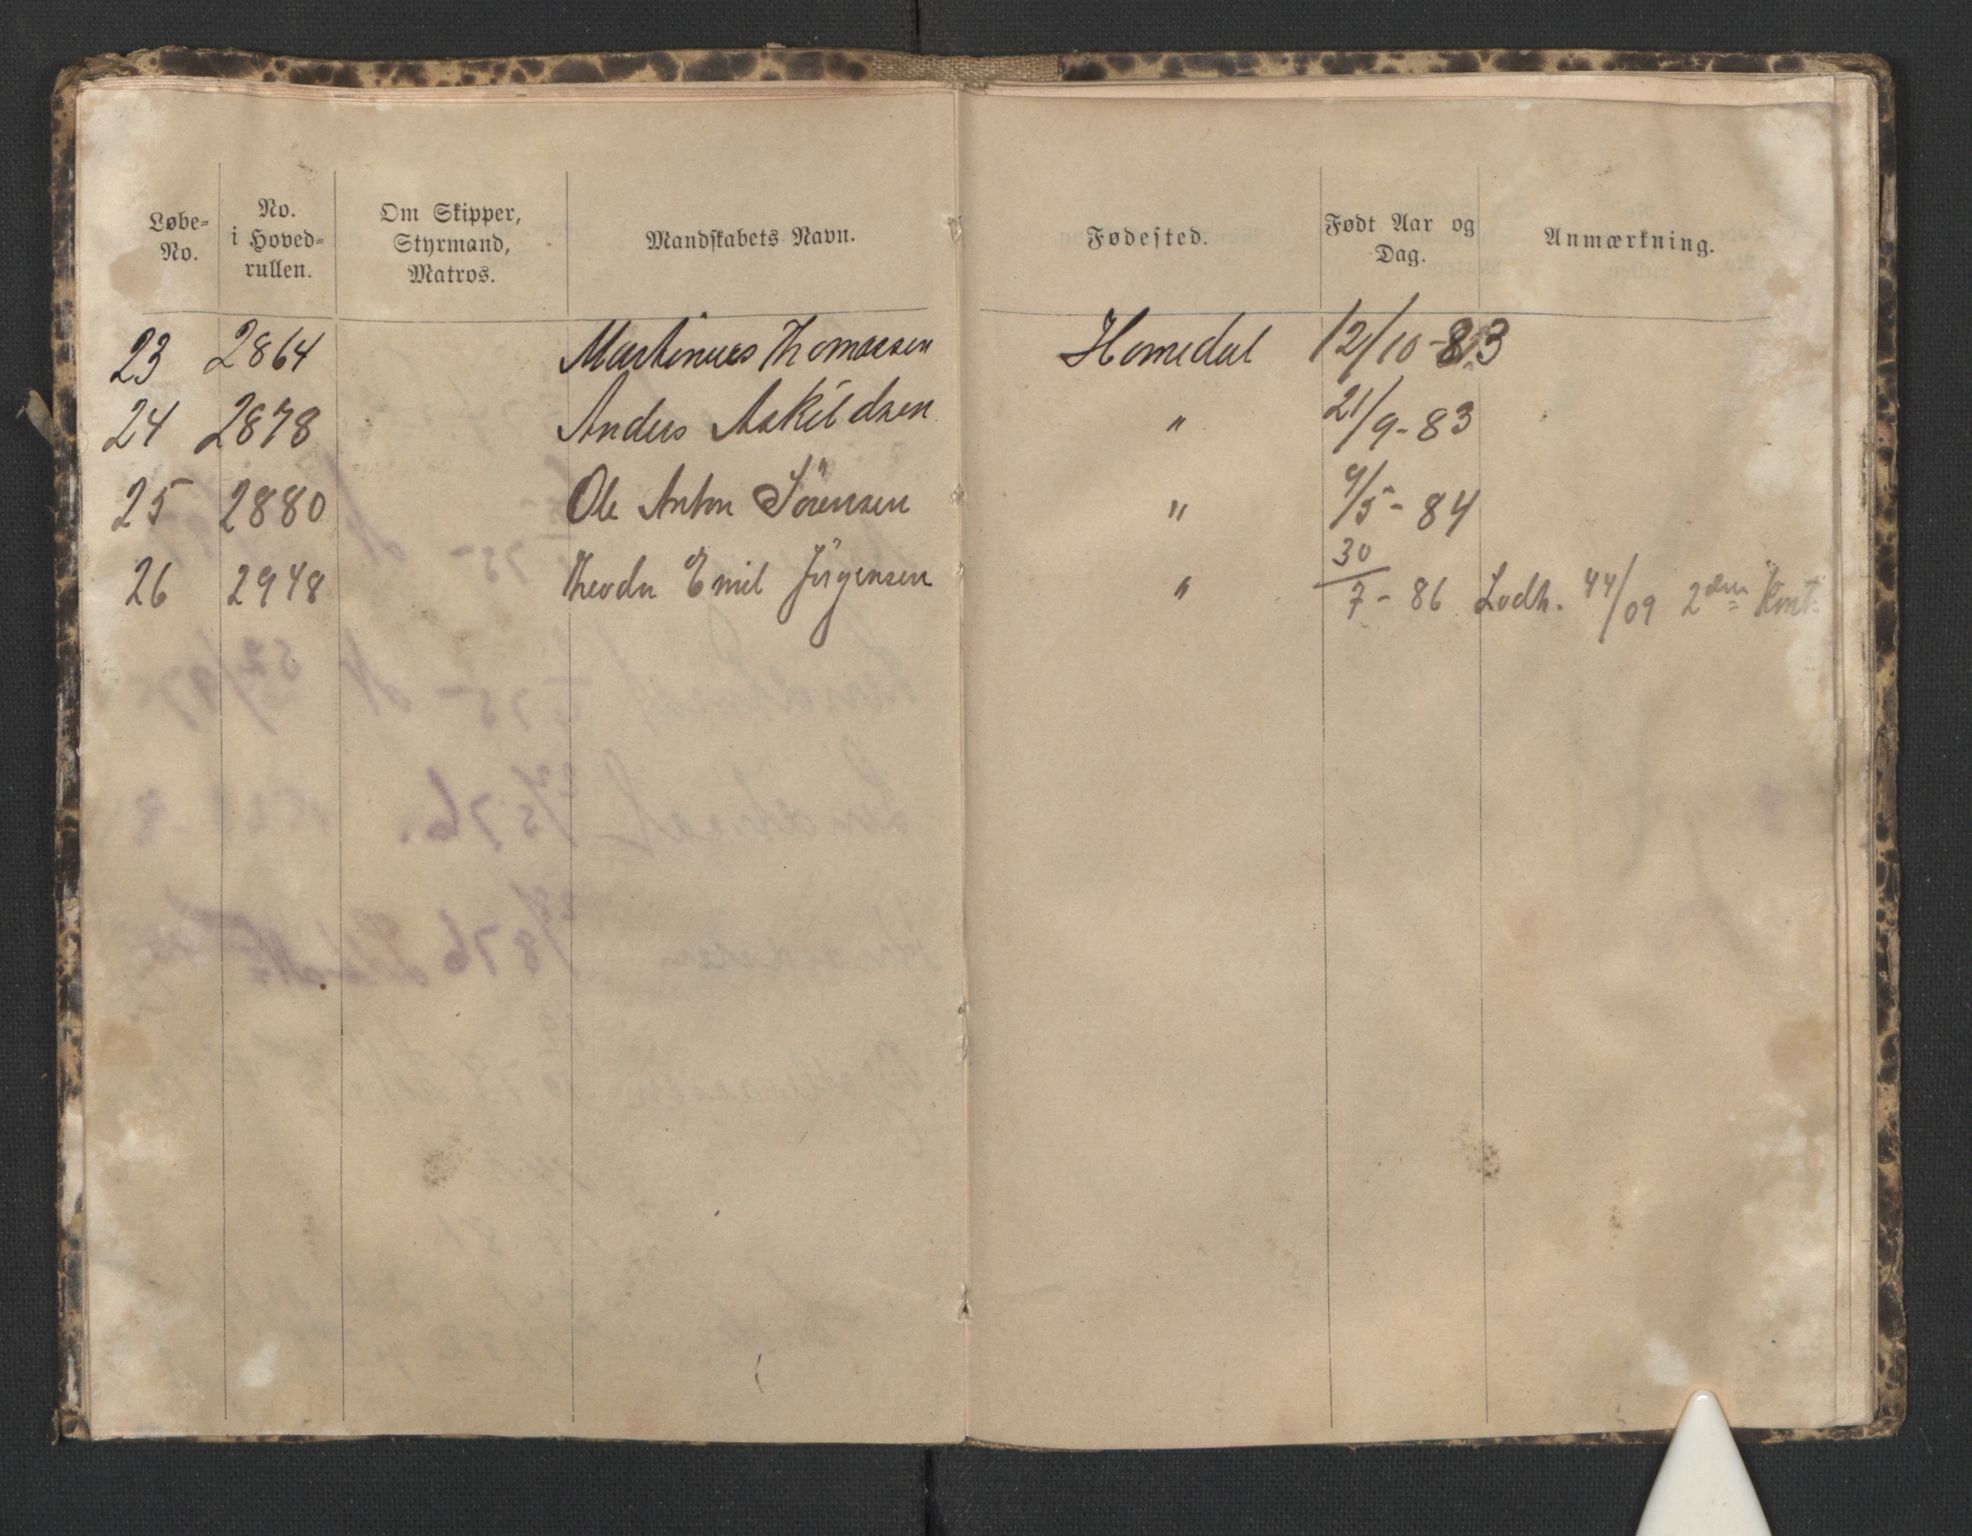 Løbe-No. No. i Hoved-rullen. Om Skipper, Styrmand, Matros. Mandskabets Navn. Fødested. Født Aar og Dag. Anmærkning.
23 2864 Martinius Thomassen Homedal 12/10-83
24 2878 Anders Askildsen " 21/9-83
25 2880 Ole Anton Sörensen " 9/5-84
26 2948 Theodor Emil Jörgensen " 30/7-86 Lodh. 44/09 2den Kont.